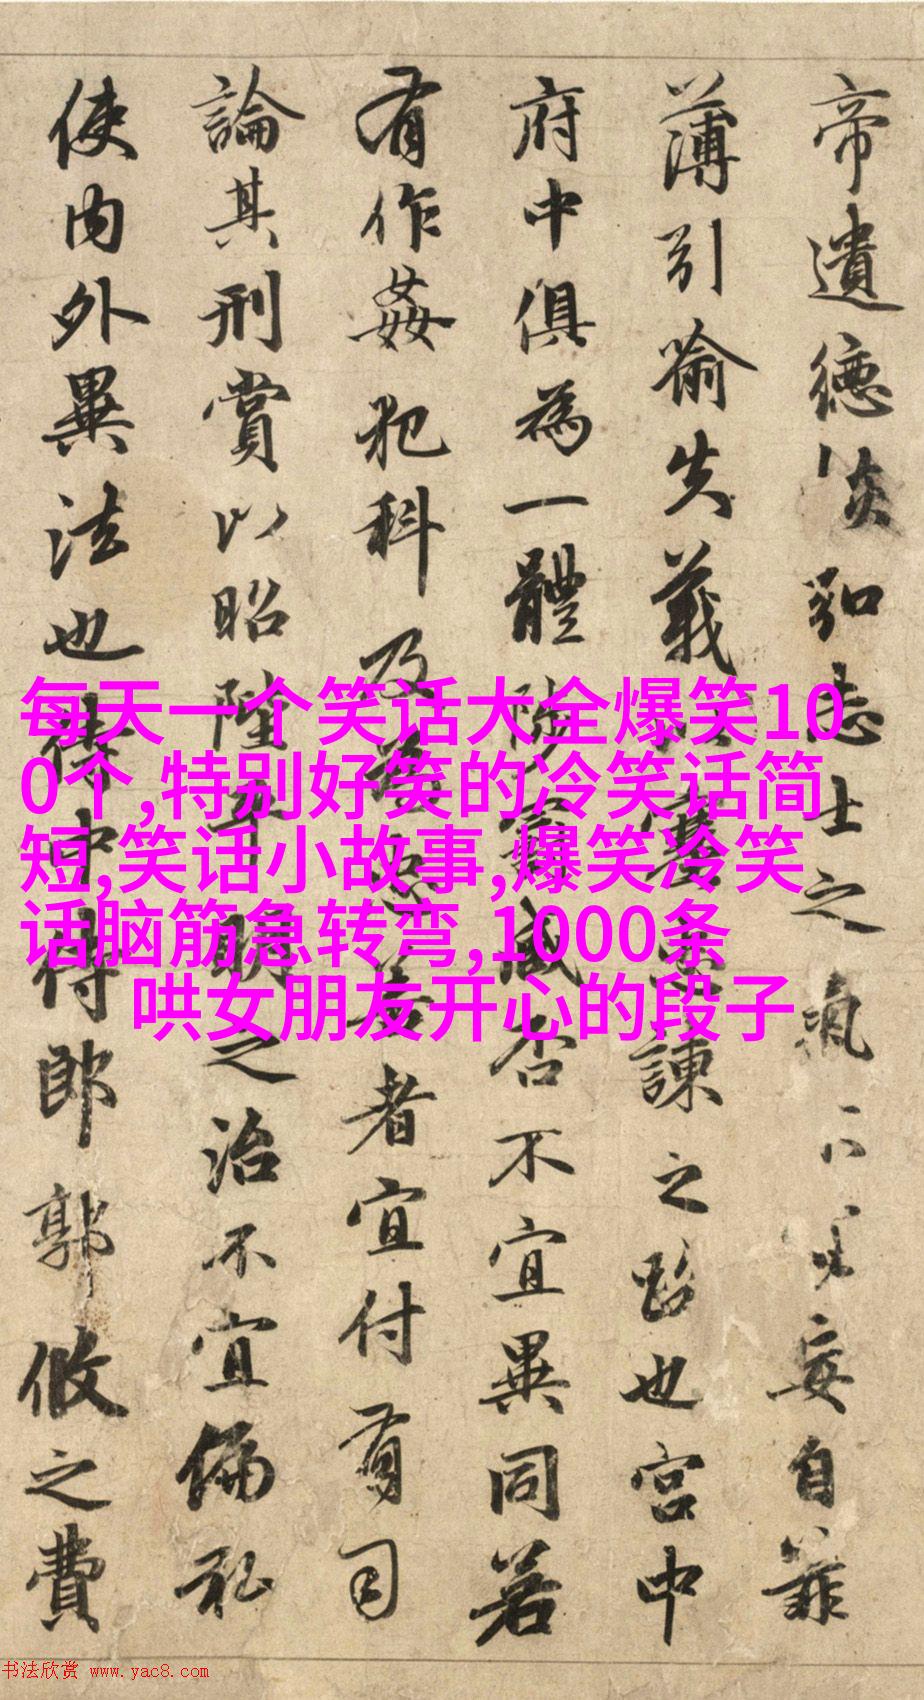 帝遺德恢弘志士之氣不宜妄自菲
薄引喻失義以塞忠諫之路也宮中
府中俱為一體陟罰臧否不宜異同若
有作姦犯科及為忠善者宜付有司
論其刑賞以昭陛下平明之治不宜偏私
使內外異法也侍中侍郎郭攸之費
每天一个笑话大全爆笑10
0个,特别好笑的冷笑话简
短,笑话小故事,爆笑冷笑
话脑筋急转弯,1000条
哄女朋友开心的段子
书法欣赏 www.yac8.com